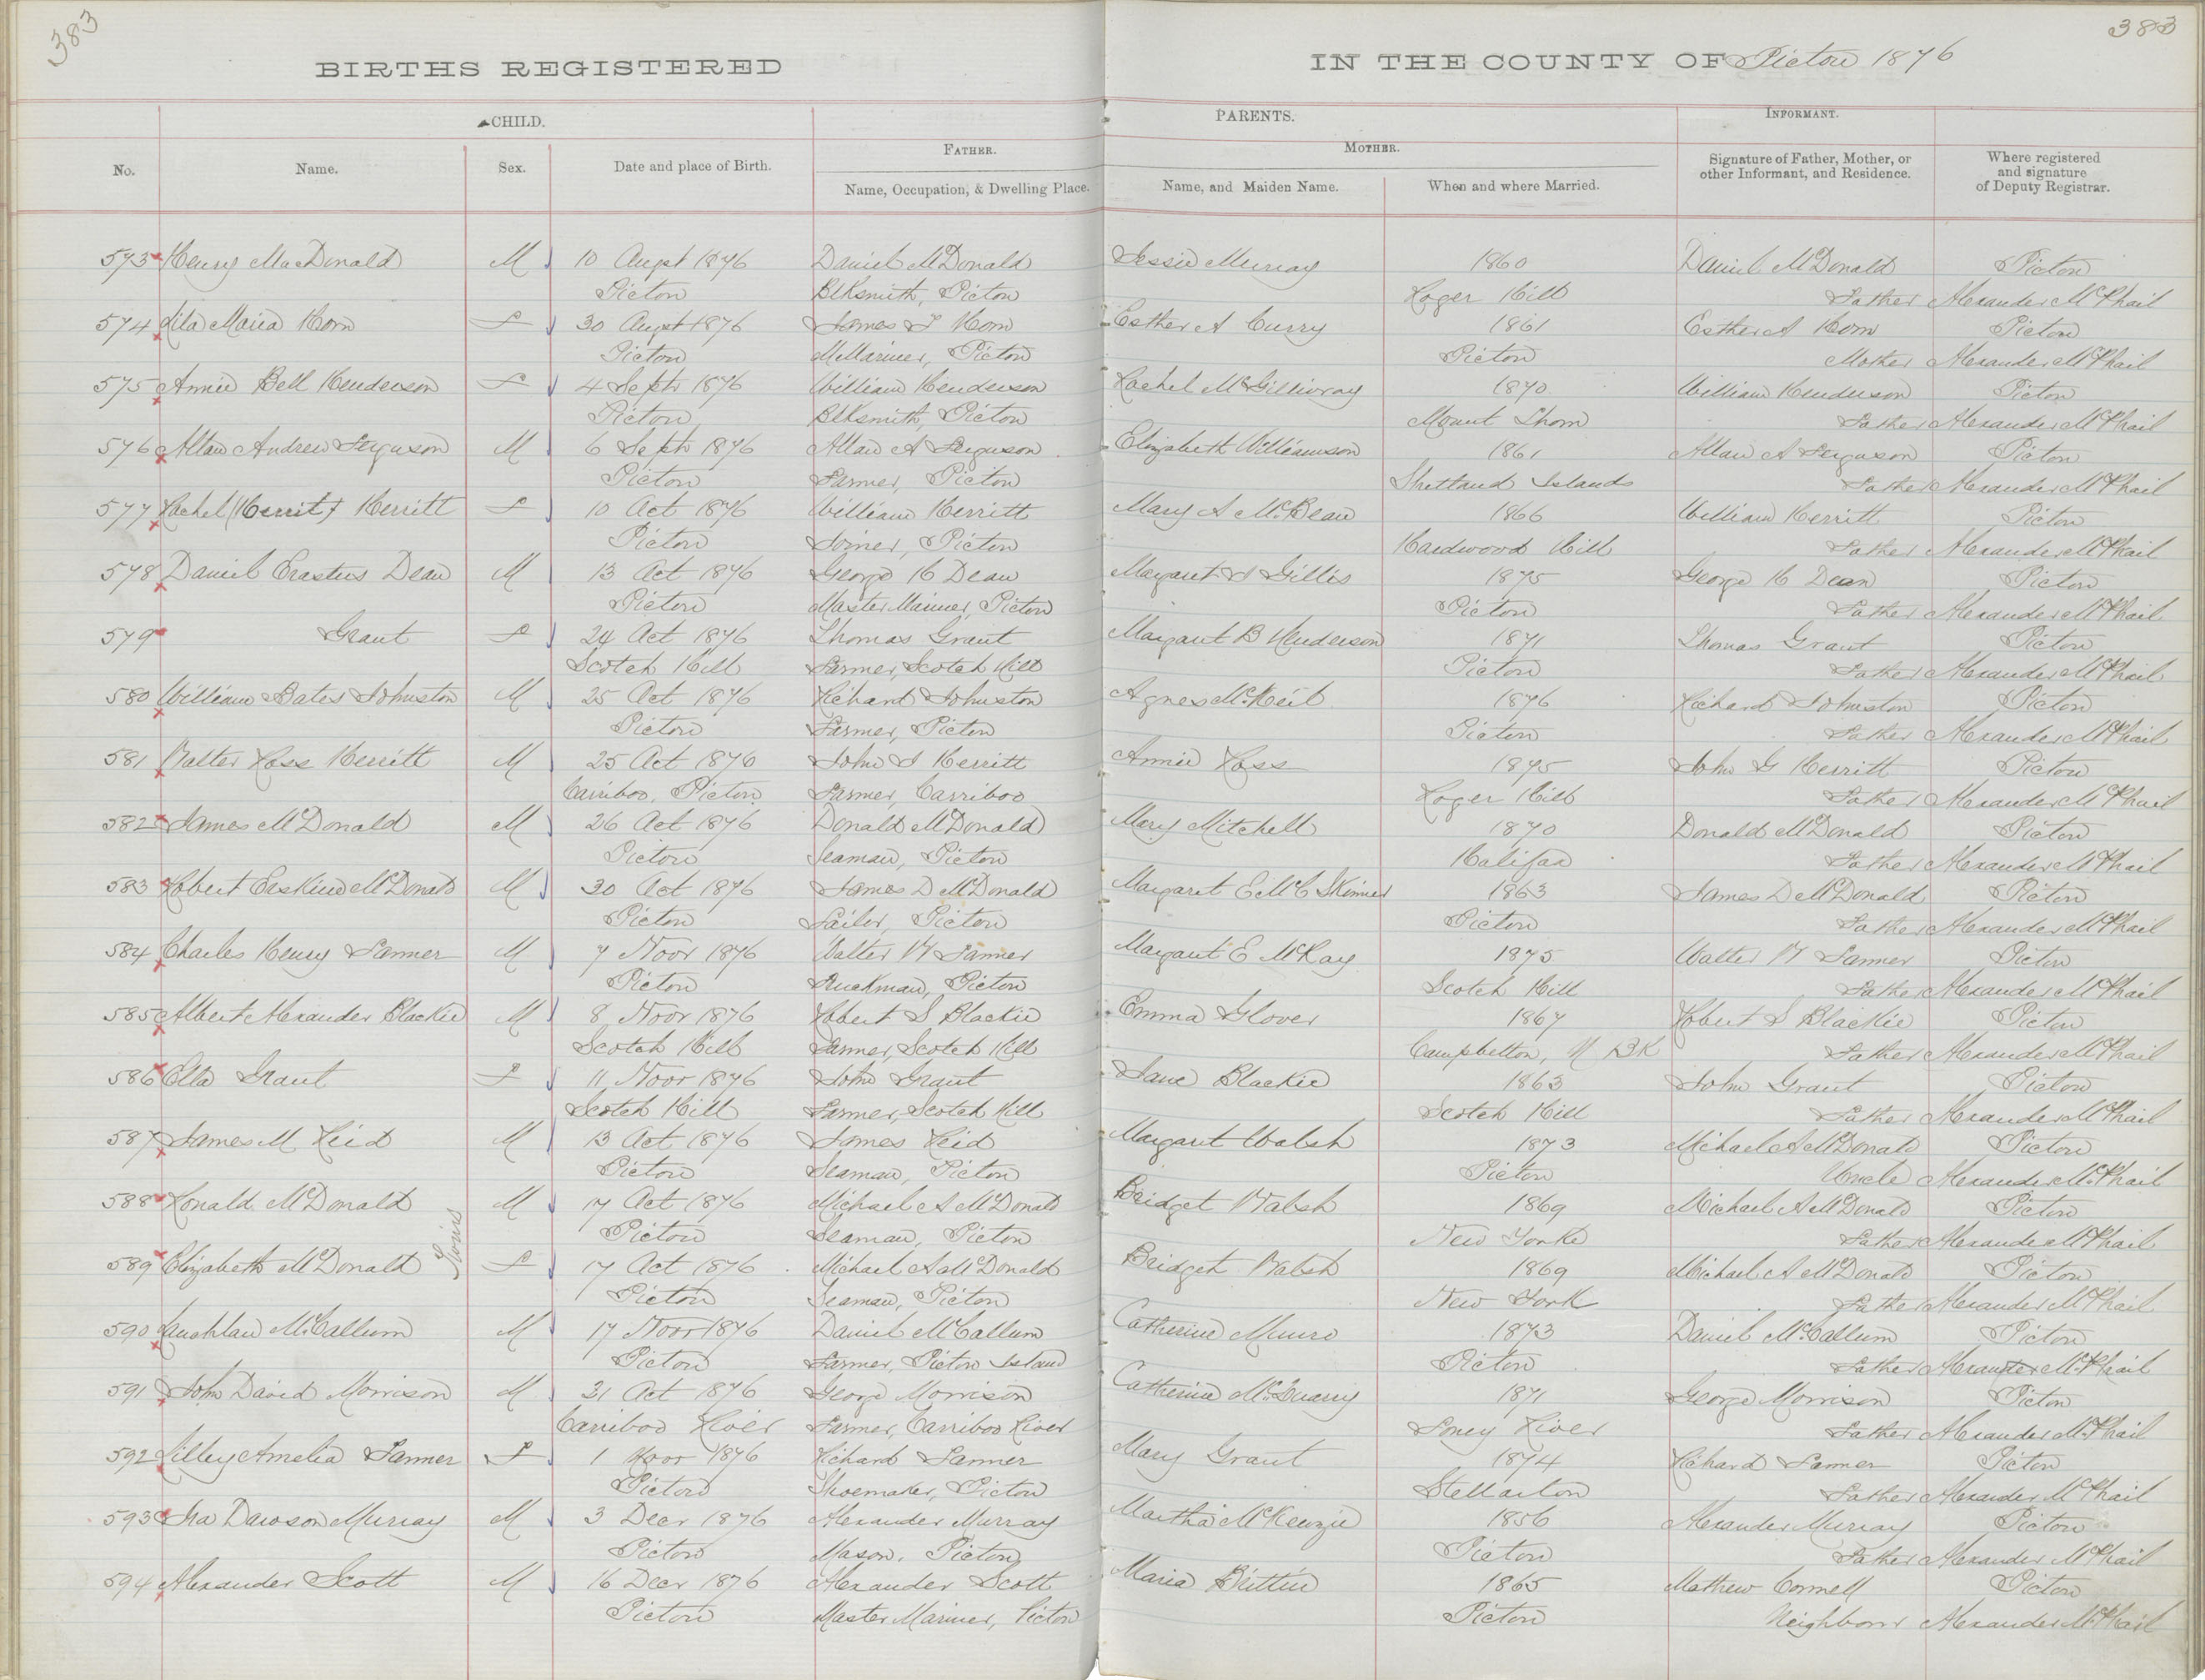 383
383
BIRTHS REGISTERED IN THE COUNTY OF Pictou 1876
CHILD. PARENTS. INFORMANT.
No. Name. Sex. Date and place of Birth. FATHER. MOTHER. Signature of Father, Mother, or other Informant, and Residence. Where registered and signature of Deputy Registrar.
Name, Occupation, & Dwelling Place. Name, and Maiden Name. When and where Married.
573 Henry MacDonald M 10 Augst 1876 Daniel McDonald Jessie Murray 1860 Daniel McDonald Pictou
Pictou Blksmith, Pictou Roger Hill Father Alexander McPhail
574 Lila Maria Horn F 30 Augst 1876 James F Horn Esther A Curry 1861 Esther A Horn Pictou
Pictou M Mariner, Pictou Pictou Mother Alexander McPhail
575 Annie Bell Henderson F 4 Septr 1876 William Henderson Rachel McGillivray 1870 William Henderson Pictou
Pictou Blksmith, Pictou Mount Thom Father Alexander McPhail
576 Allan Andrew Ferguson M 6 Septr 1876 Allan A Ferguson Elizabeth Williamson 1861 Allan A Ferguson Pictou
Pictou Farmer, Pictou Shetland Islands Father Alexander McPhail
577 Rachel (Herrit) Herritt F 10 Oct 1876 William Herritt Mary A McBean 1866 William Herritt Pictou
Pictou Joiner, Pictou Hardwood Hill Father Alexander McPhail
578 Daniel Erastus Dean M 13 Oct 1876 George H Dean Margaret J Gillis 1875 George H Dean Pictou
Pictou Master Mariner, Pictou Pictou Father Alexander McPhail
579 Grant F 24 Oct 1876 Thomas Grant Margaret B Henderson 1871 Thomas Grant Pictou
Scotch Hill Farmer, Scotch Hill Pictou Father Alexander McPhail
580 William Bates Johnston M 25 Oct 1876 Richard Johnston Agnes McNeil 1876 Richard Johnston Pictou
Pictou Farmer, Pictou Pictou Father Alexander McPhail
581 Walter Ross Herritt M 25 Oct 1876 John G Herritt Annie Ross 1875 John G Herritt Pictou
Carriboo, Pictou Farmer, Carriboo Roger Hill Father Alexander McPhail
582 James McDonald M 26 Oct 1876 Donald McDonald Mary Mitchell 1870 Donald McDonald Pictou
Pictou Seaman, Pictou Halifax Father Alexander McPhail
583 Robert Erskine McDonald M 30 Oct 1876 James D McDonald Margaret E McC Skinner 1863 James D McDonald Pictou
Pictou Sailor, Pictou Pictou Father Alexander McPhail
584 Charles Henry Tanner M 7 Novr 1876 Walter W Tanner Margaret E McKay 1875 Walter W Tanner Pictou
Pictou Truckman, Pictou Scotch Hill Father Alexander McPhail
585 Albert Alexander Blackie M 8 Novr 1876 Robert S Blackie Emma Glover 1867 Robert S Blackie Pictou
Scotch Hill Farmer, Scotch Hill Campbelton, N BK Father Alexander McPhail
586 Ella Grant F 11 Novr 1876 John Grant Jane Blackie 1863 John Grant Pictou
Scotch Hill Farmer, Scotch Hill Scotch Hill Father Alexander McPhail
587 James M Reid M 13 Oct 1876 James Reid Margaret Walsh 1873 Michael A McDonald Pictou
Pictou Seaman, Pictou Pictou Uncle Alexander McPhail
588 Ronald McDonald Twins M 17 Oct 1876 Michael A McDonald Bridget Walsh 1869 Michael A McDonald Pictou
Pictou Seaman, Pictou New Yorke Father Alexander McPhail
589 Elizabeth McDonald F 17 Oct 1876 Michael A McDonald Bridget Walsh 1869 Michael A McDonald Pictou
Pictou Seaman, Pictou New York Father Alexander McPhail
590 Lauchlan McCallum M 17 Novr 1876 Daniel McCallum Catherine Munro 1873 Daniel McCallum Pictou
Pictou Farmer, Pictou Island Pictou Father Alexander McPhail
591 John David Morrison M 31 Oct 1876 George Morrison Catherine McQuarry 1871 George Morrison Pictou
Carriboo River Farmer, Carriboo River Toney River Father Alexander McPhail
592 Lilley Amelia Tanner F 1 Novr 1876 Richard Tanner Mary Grant 1874 Richard Tanner Pictou
Pictou Shoemaker, Pictou Stellarton Father Alexander McPhail
593 Ira Dawson Murray M 3 Decr 1876 Alexander Murray Martha McKenzie 1856 Alexander Murray Pictou
Pictou Mason, Pictou Pictou Father Alexander McPhail
594 Alexander Scott M 16 Decr 1876 Alexander Scott Maria Brittin 1865 Mathew Connell Pictou
Pictou Master Mariner, Pictou Pictou Neighbour Alexander McPhail